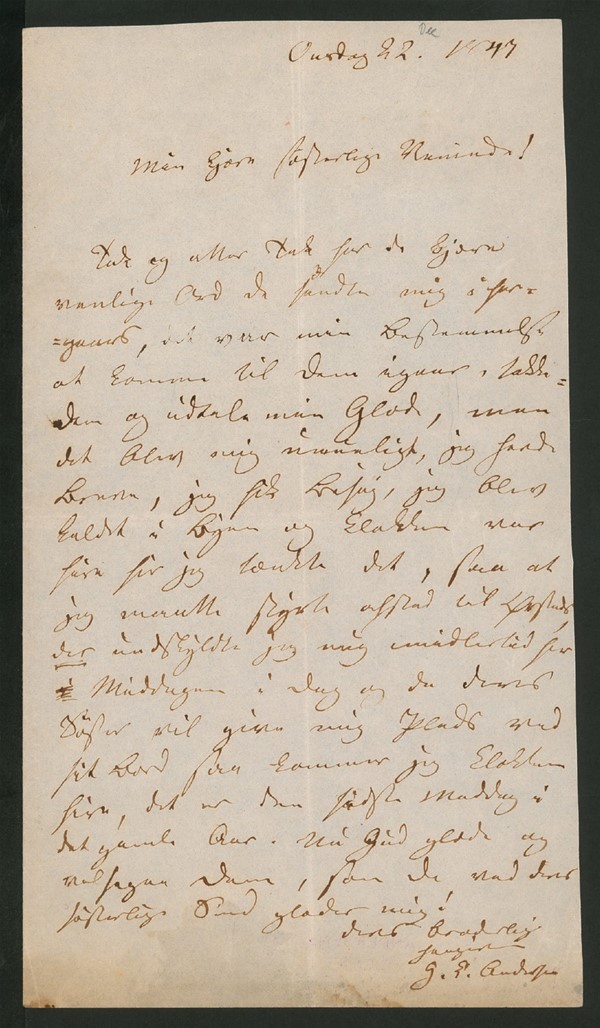 Onsdag 22. Dec 1847
Min kjære søsterlige Veninde!
Tak og atter Tak for de kjære
venlige Ord De sendte mig i for=
=gaars, det var min Bestemmelse
at komme til Dem igaar, takke=
Dem og udtale min Glæde, men
det blev mig umueligt, jeg havde
Breve, jeg fik Besøg, jeg blev
kaldet i Byen og Klokken var
fire før jeg tænkte det, saa at
jeg maatte styrte afsted til Ørsteds,
der undskyldte jeg mig imidlertid for
Middagen i Dag og da Deres
Søster vil give mig Plads ved
sit Bord saa kommer jeg Klokken
fire, det er den sidste Middag i
det gamle Aar. Nu Gud glæde og
velsigne Dem, som De ved Deres
søsterlige Sind glæder mig!
Deres broderlig
hengivne
H. C. Andersen